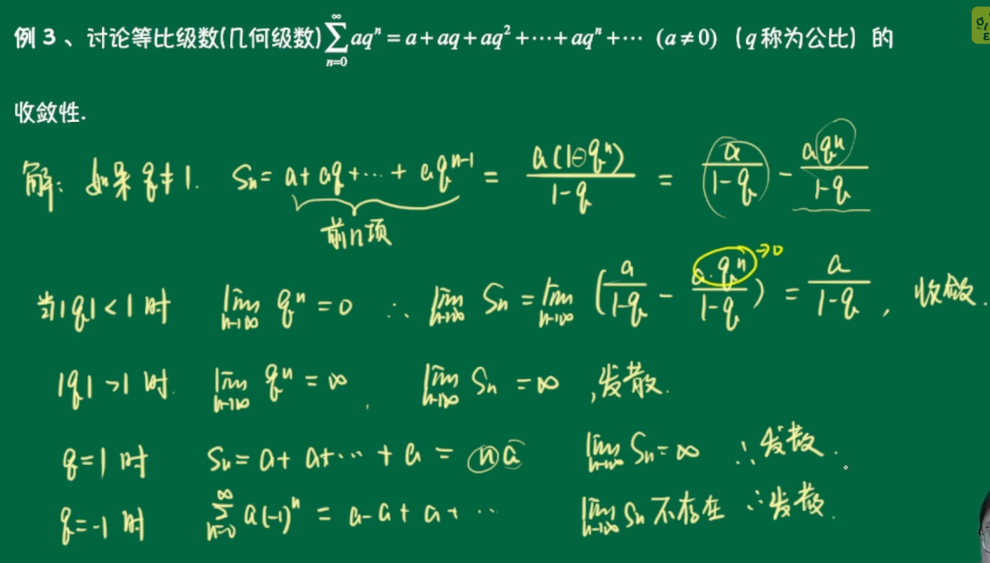 例 3 、讨论等比级数(几何级数) $\sum_{n=0}^{\infty} aq^n = a + aq + aq^2 + \cdots + aq^n + \cdots$ (a≠0)（q 称为公比）的
收敛性.
解: 如果 q≠1. $S_n = a + aq + \cdots + aq^{n-1} = \frac{a(1-q^n)}{1-q} = \frac{a}{1-q} - \frac{aq^n}{1-q}$
前n项
当|q|<1时 $\lim_{n\to\infty} q^n = 0$ ∴ $\lim_{n\to\infty} S_n = \lim_{n\to\infty} (\frac{a}{1-q} - \frac{a \cdot q^n}{1-q}) = \frac{a}{1-q}$ , 收敛. →0
|q|>1时. $\lim_{n\to\infty} q^n = \infty$ , $\lim_{n\to\infty} S_n = \infty$ , 发散.
q=1时 $S_n = a + a + \cdots + a = na$ $\lim_{n\to\infty} S_n = \infty$ ∴发散.
q=-1时 $\sum_{n=0}^{\infty} a(-1)^n = a - a + a + \cdots$ $\lim_{n\to\infty} S_n$ 不存在 ∴发散.